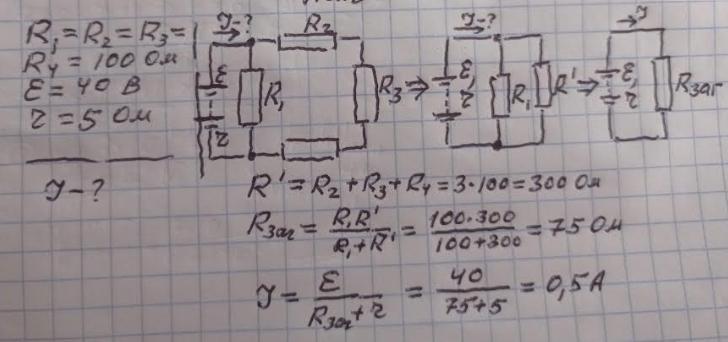 R₁ = R₂ = R₃ =
R₄ = 100 Ом
Ɛ = 40 В
r = 5 Ом
I - ?
I - ?
R₂
Ɛ, r
R₁
R₃ ⇒
I - ?
Ɛ, r
R₁
R' ⇒
I
Ɛ, r
Rзаг
R' = R₂ + R₃ + R₄ = 3·100 = 300 Ом
Rзаг = R₁R' / R₁+R' = 100·300 / 100+300 = 75 Ом
I = Ɛ / Rзаг + r = 40 / 75+5 = 0,5 А